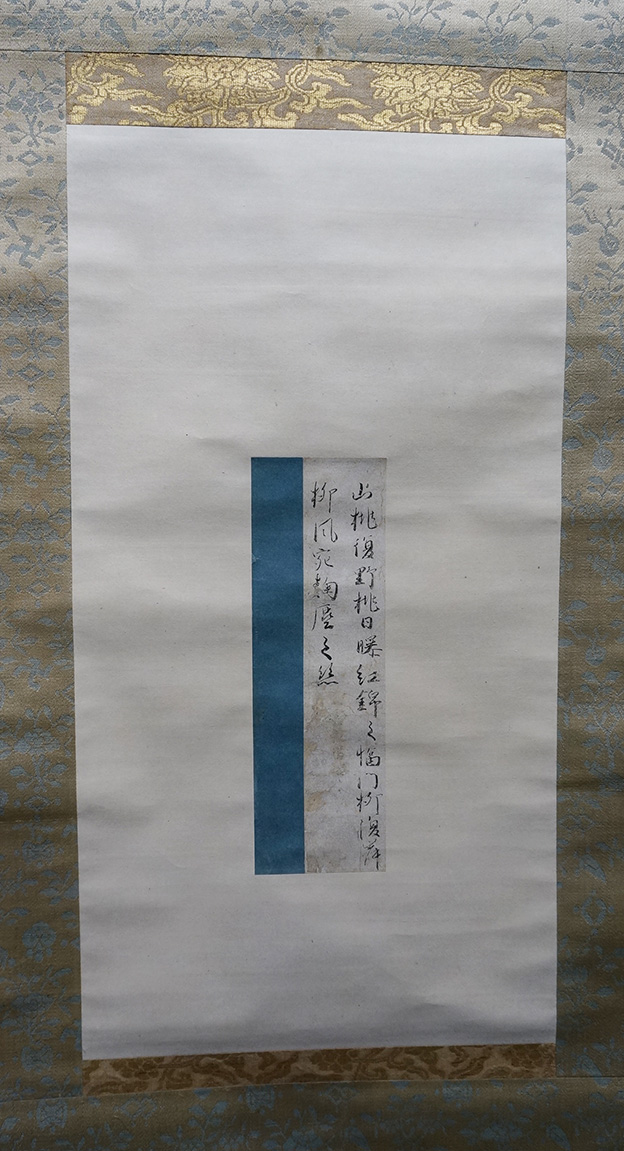 山桃復野桃日曝紅錦之幅門柳復岸
柳風宛麹塵之絲